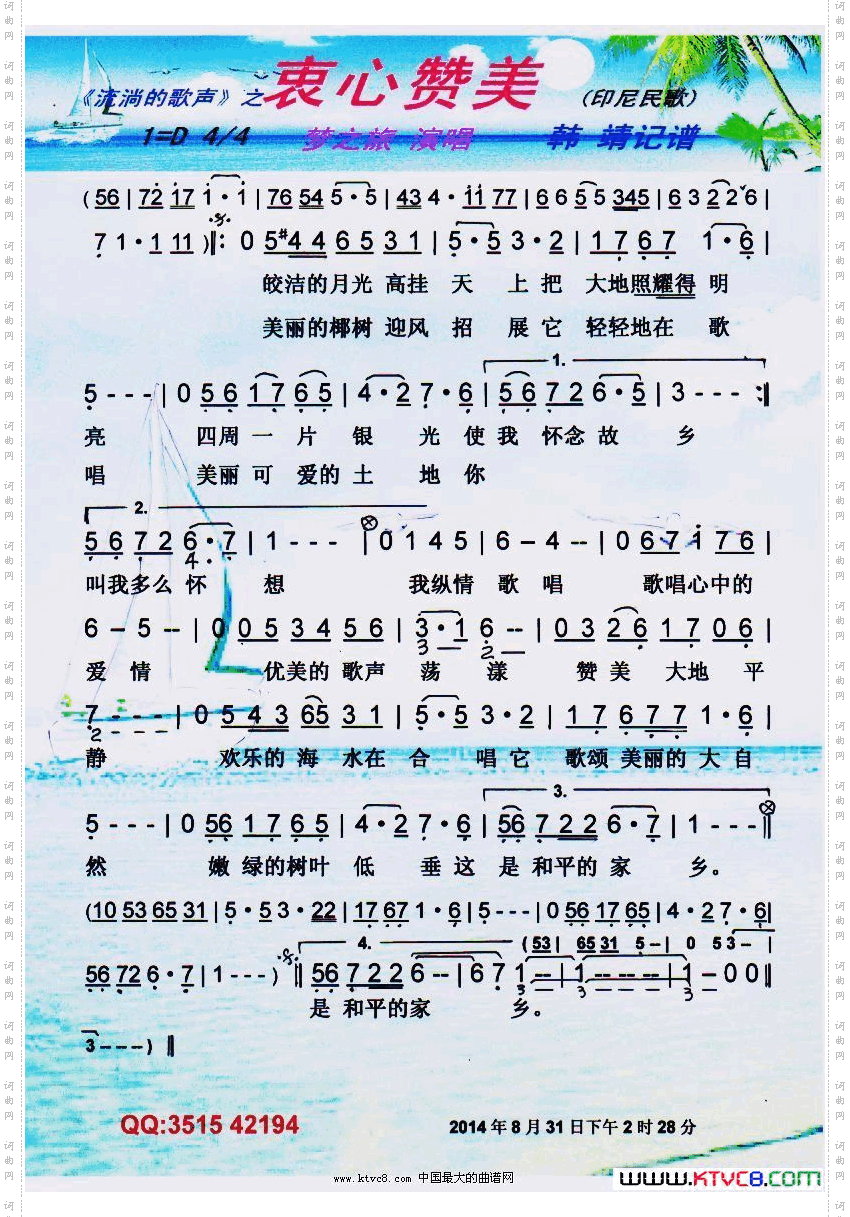 《流淌的歌声》之 衷心赞美 (印尼民歌)
1=D 4/4 梦之旅 演唱 韩 靖记谱
(56|72 17 1·1|76 54 5·5|43 4·11 77|66 55 345|63 22 6|
7 1·1 11)‖: 0 5#44 65 31|5·5 3·2|17 67 1·6|
皎洁的月光 高挂 天 上 把 大地照耀得 明
美丽的椰树 迎风 招 展 它 轻轻地在 歌
1.
5 - - -|0 56 17 65|4·2 7·6|56 72 6·5|3 - - - :‖
亮 四周 一 片 银 光 使 我 怀念 故 乡
唱 美丽 可 爱的 土 地 你
2.
56 72 6·7|1 - - -|0 1 4 5|6 - 4 - -|0 67 1 76|
4·
叫我多么 怀 想 我纵情 歌 唱 歌唱心中的
6 - 5 - -|0 05 34 56|3·1 6 - -|03 26 17 06|
3 - 2 - -
爱 情 优美的 歌声 荡 漾 赞 美 大地 平
7 - - -|0 543 65 31|5·5 3·2|17 677 1·6|
2 - - -
静 欢乐的 海 水在 合 唱它 歌颂 美丽的 大 自
3.
5 - - -|0 56 17 65|4·2 7·6|56 722 6·7|1 - - -‖
然 嫩 绿的树叶 低 垂这 是 和平的 家 乡。
(10 53 65 31|5·5 3·22|17 67 1·6|5 - - -|0 56 17 65|4·2 7·6|
4. (53| 65 31 5 -| 0 53 - |
56 72 6·7|1 - - - )‖56 722 6 - -|67 1 - -|1 - - -|1 - 00‖
3 3 3
是 和平的家 乡。
3 - - -)‖
QQ:3515 42194
2014 年 8 月 31 日下午 2 时 28 分
www.ktvc8.com 中国最大的曲谱网
WWW.KTVC8.COM
词曲网